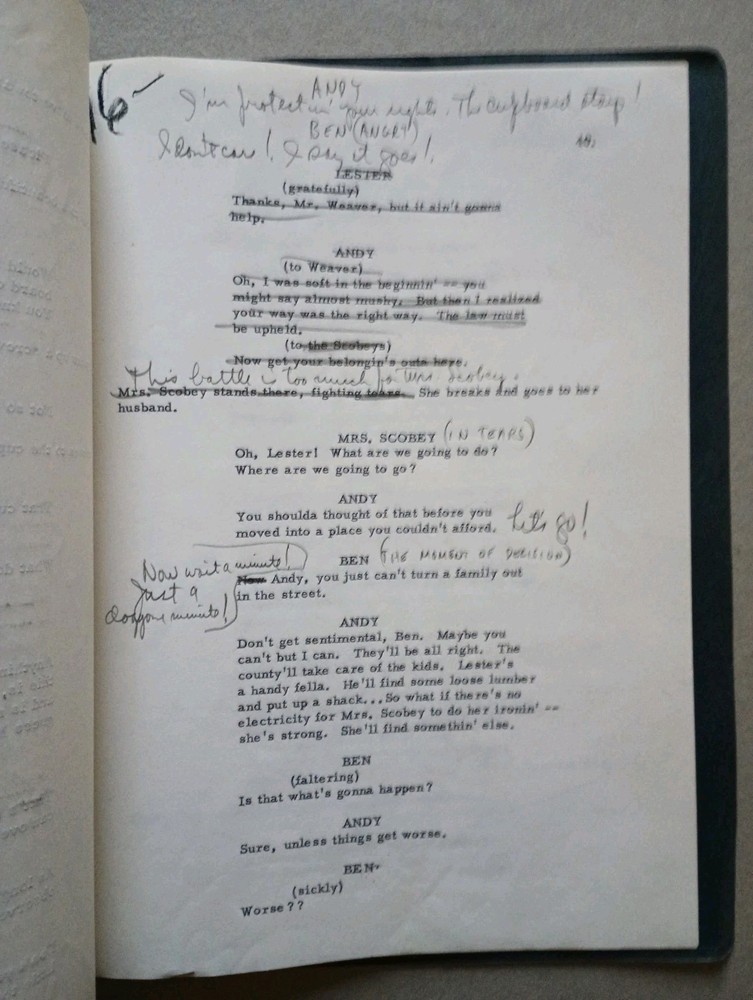 16-
ANDY
I'm protectin' your rights. The cupboard stays!
BEN (ANGRY)
I don't care! I say it goes!
48.
LESTER
(gratefully)
Thanks, Mr. Weaver, but it ain't gonna
help.
ANDY
(to Weaver)
Oh, I was soft in the beginnin' -- you
might say almost mushy. But then I realized
your way was the right way. The law must
be upheld.
(to the Scobeys)
Now get your belongin's outa here.
This battle is too much for Mrs. Scobey.
Mrs. Scobey stands there, fighting tears. She breaks and goes to her
husband.
MRS. SCOBEY (IN TEARS)
Oh, Lester! What are we going to do?
Where are we going to go?
ANDY
You shoulda thought of that before you
moved into a place you couldn't afford. Let's go!
BEN (THE MOMENT OF DECISION)
Now wait a minute!
Just a
doggone minute!
Now Andy, you just can't turn a family out
in the street.
ANDY
Don't get sentimental, Ben. Maybe you
can't but I can. They'll be all right. The
county'll take care of the kids. Lester's
a handy fella. He'll find some loose lumber
and put up a shack...So what if there's no
electricity for Mrs. Scobey to do her ironin' --
she's strong. She'll find somethin' else.
BEN
(faltering)
Is that what's gonna happen?
ANDY
Sure, unless things get worse.
BEN
(sickly)
Worse??